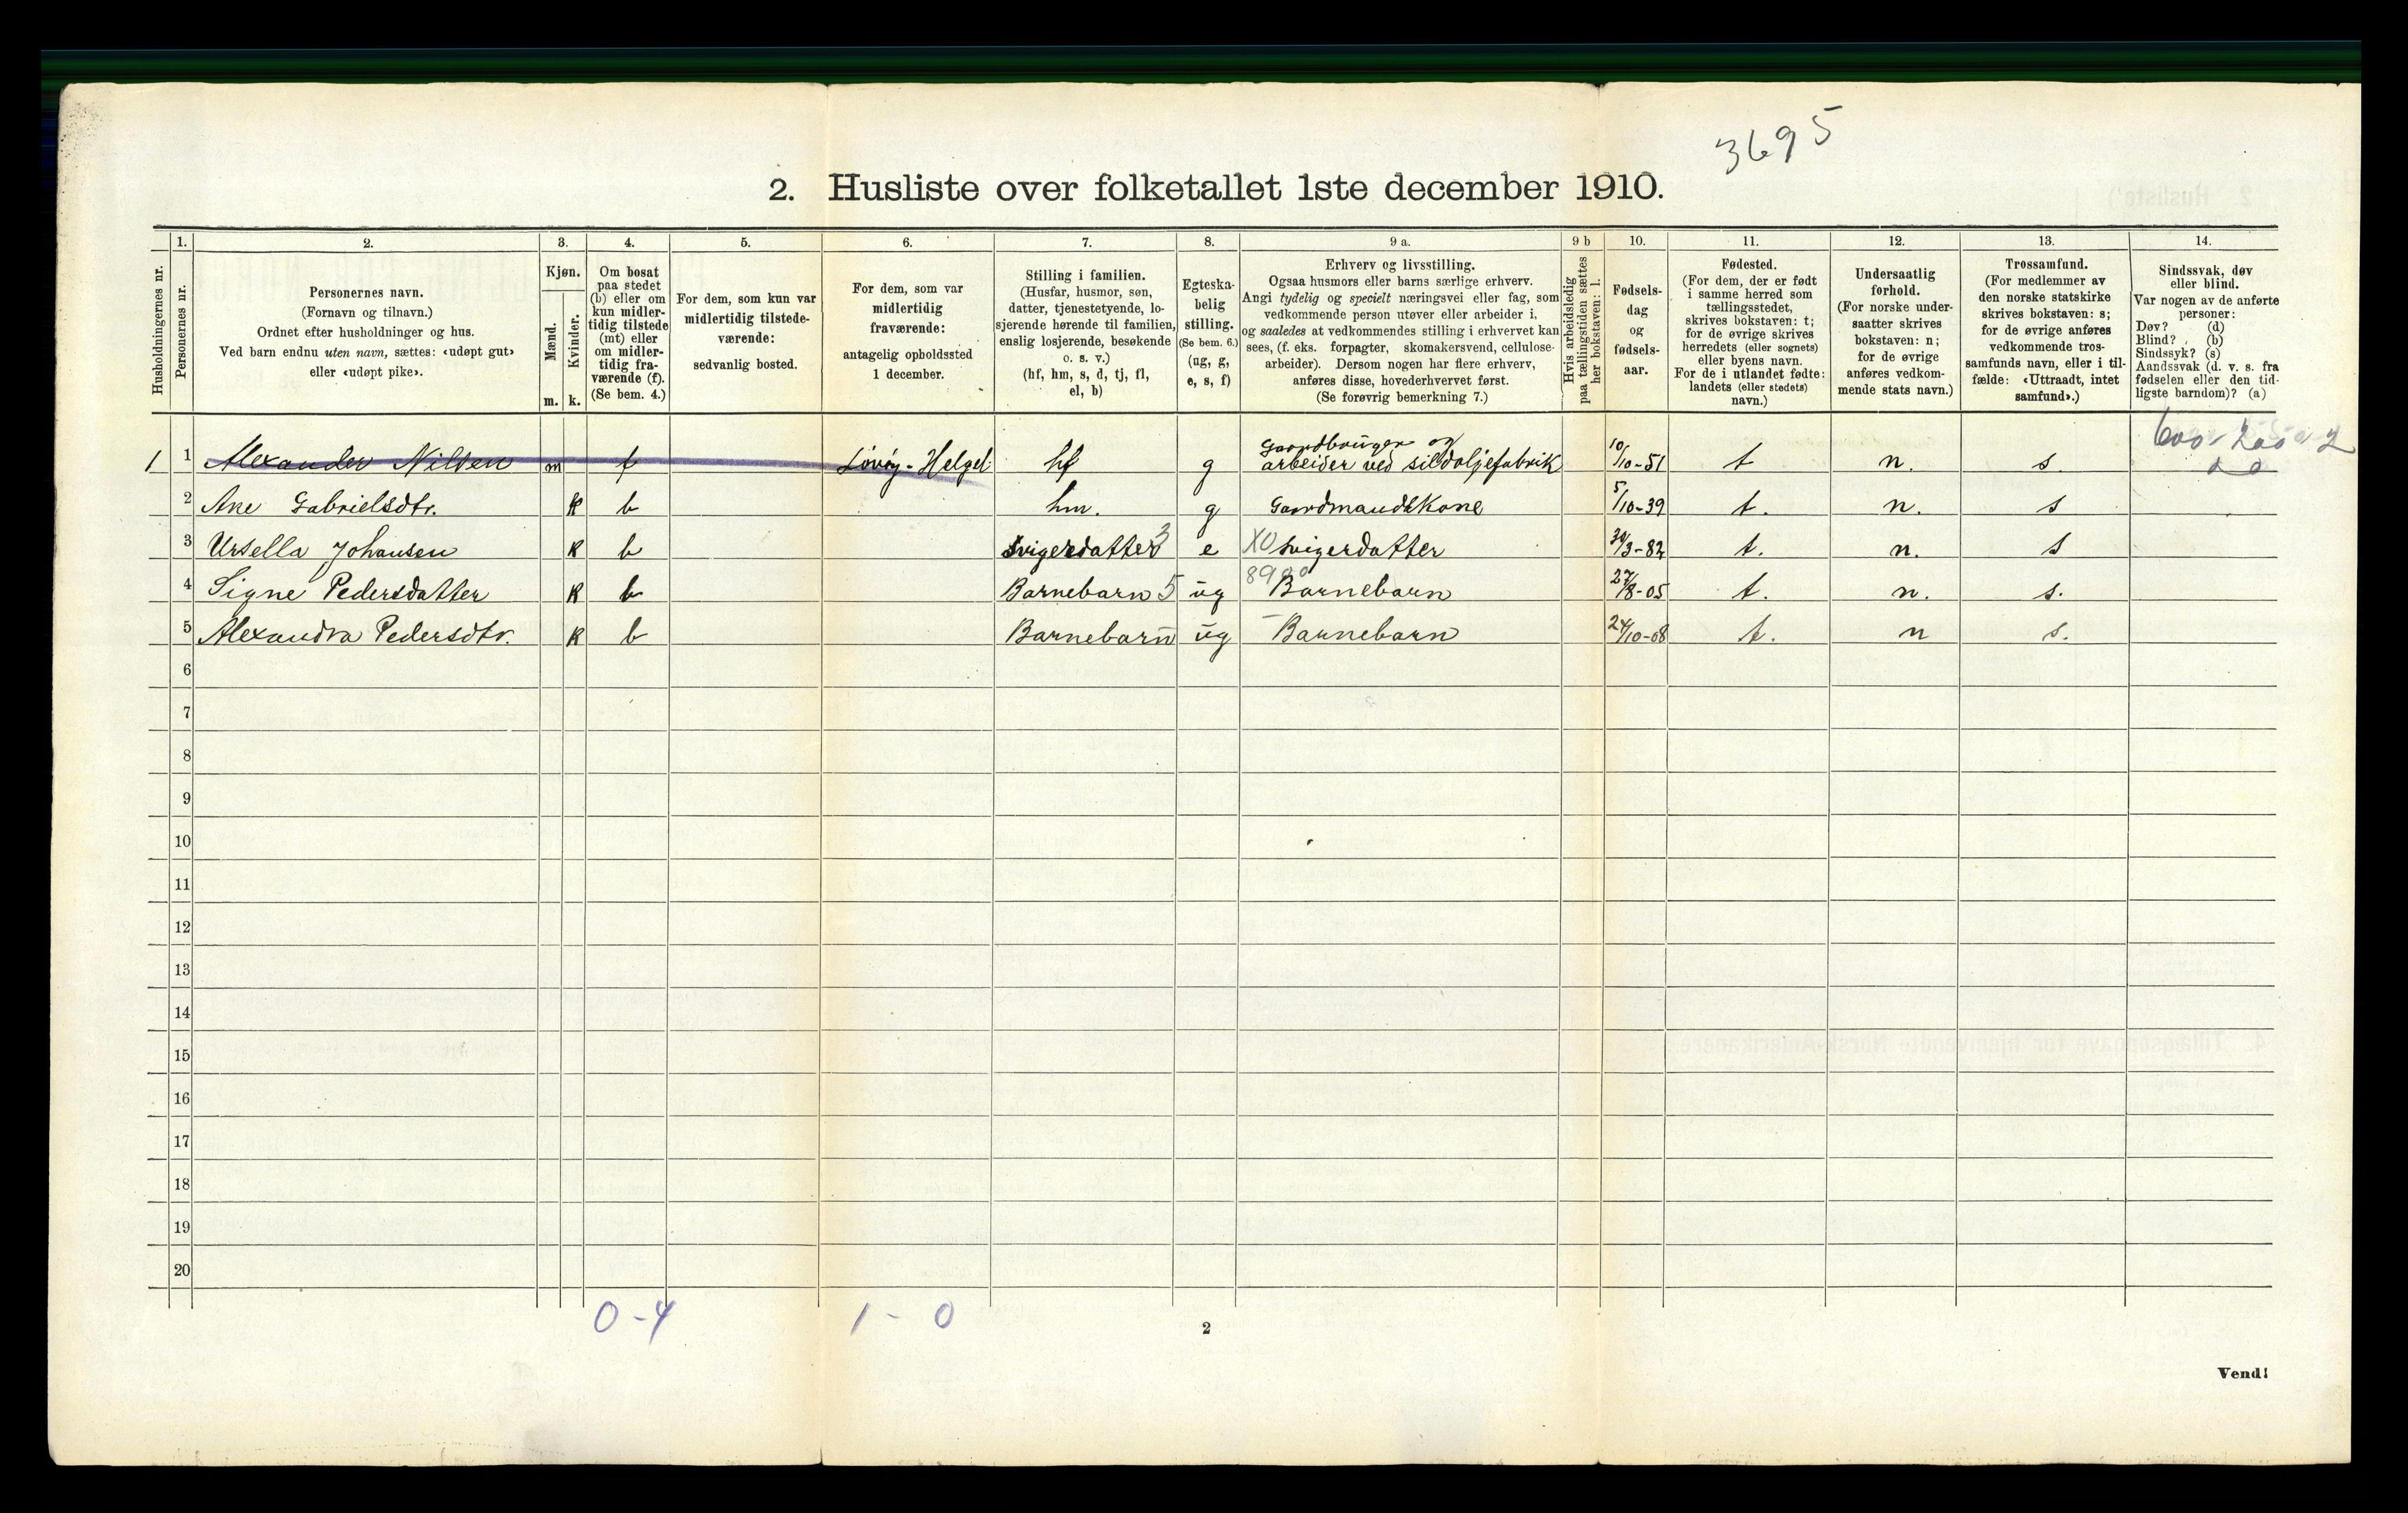 3695
2. Husliste over folketallet 1ste december 1910.
1. 2. 3. 4. 5. 6. 7. 8. 9 a. 9 b 10. 11. 12. 13. 14.
Husholdningernes nr.
Personernes nr.
Personernes navn.
(Fornavn og tilnavn.)
Ordnet efter husholdninger og hus.
Ved barn endnu uten navn, sættes: «udøpt gut»
eller «udøpt pike».
Kjøn.
Mænd.
Kvinder.
m. k.
Om bosat
paa stedet
(b) eller om
kun midler-
tidig tilstede
(mt) eller
om midler-
tidig fra-
værende (f).
(Se bem. 4.)
For dem, som kun var
midlertidig tilstede-
værende:
sedvanlig bosted.
For dem, som var
midlertidig
fraværende:
antagelig opholdssted
1 december.
Stilling i familien.
(Husfar, husmor, søn,
datter, tjenestetyende, lo-
sjerende hørende til familien,
enslig losjerende, besøkende
o. s. v.)
(hf, hm, s, d, tj, fl,
el, b)
Egteska-
belig
stilling.
(Se bem. 6.)
(ug, g,
e, s, f)
Erhverv og livsstilling.
Ogsaa husmors eller barns særlige erhverv.
Angi tydelig og specielt næringsvei eller fag, som
vedkommende person utøver eller arbeider i,
og saaledes at vedkommendes stilling i erhvervet kan
sees, (f. eks. forpagter, skomakersvend, cellulose-
arbeider). Dersom nogen har flere erhverv,
anføres disse, hovederhvervet først.
(Se forøvrig bemerkning 7.)
Hvis arbeidsledig
paa tællingstiden sættes
her bokstaven: l.
Fødsels-
dag
og
fødsels-
aar.
Fødested.
(For dem, der er født
i samme herred som
tællingsstedet,
skrives bokstaven: t;
for de øvrige skrives
herredets (eller sognets)
eller byens navn.
For de i utlandet fødte:
landets (eller stedets)
navn.)
Undersaatlig
forhold.
(For norske under-
saatter skrives
bokstaven: n;
for de øvrige
anføres vedkom-
mende stats navn.)
Trossamfund.
(For medlemmer av
den norske statskirke
skrives bokstaven: s;
for de øvrige anføres
vedkommende tros-
samfunds navn, eller i til-
fælde: «Uttraadt, intet
samfund».)
Sindssvak, døv
eller blind.
Var nogen av de anførte
personer:
Døv? (d)
Blind? (b)
Sindssyk? (s)
Aandssvak (d. v. s. fra
fødselen eller den tid-
ligste barndom)? (a)
Gaardbruger og
1 1 Alexander Nilsen m f Lovøy - Helgel. hf g arbeider ved sildoljefabrik 10/10-51 t n. s.
2 Ane Gabrielsdtr. k b hm. g Gaardmandskone 5/10-39 t. n. s
3 Ursella Johansen k b Svigerdatter 3 e XO Svigerdatter /3-82 t. n. s
4 Signe Pedersdatter k b Barnebarn 5 ug Barnebarn 27/8-05 t. n. s.
5 Alexandra Pedersdtr. k b Barnebarn ug Barnebarn 24/10-08 t. n s.
6
7
8
9
10
11
12
13
14
15
16
17
18
19
20
0-4 1-0
2
Vend!